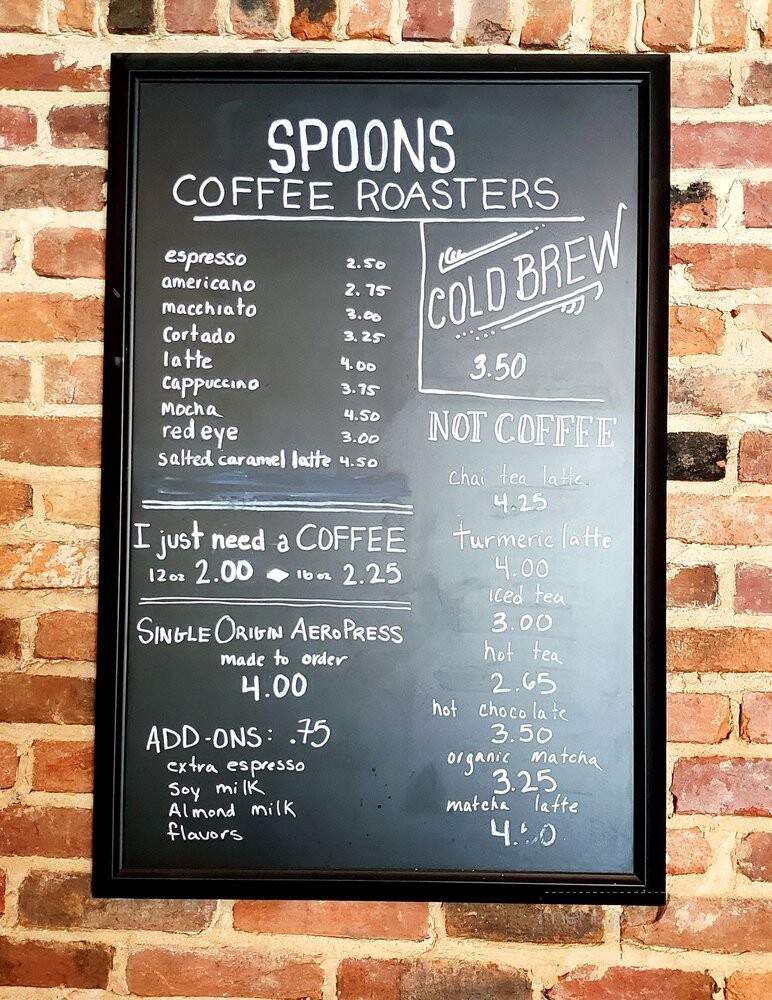 SPOONS
COFFEE ROASTERS
espresso 2.50
americano 2.75
macchiato 3.00
Cortado 3.25
latte 4.00
cappuccino 3.75
mocha 4.50
red eye 3.00
salted caramel latte 4.50
I just need a COFFEE
12oz 2.00 16oz 2.25
SINGLE ORIGIN AEROPRESS
made to order
4.00
ADD-ONS: .75
extra espresso
Soy milk
Almond milk
flavors
COLD BREW
3.50
NOT COFFEE
chai tea latte
4.25
turmeric latte
4.00
iced tea
3.00
hot tea
2.65
hot chocolate
3.50
organic matcha
3.25
matcha latte